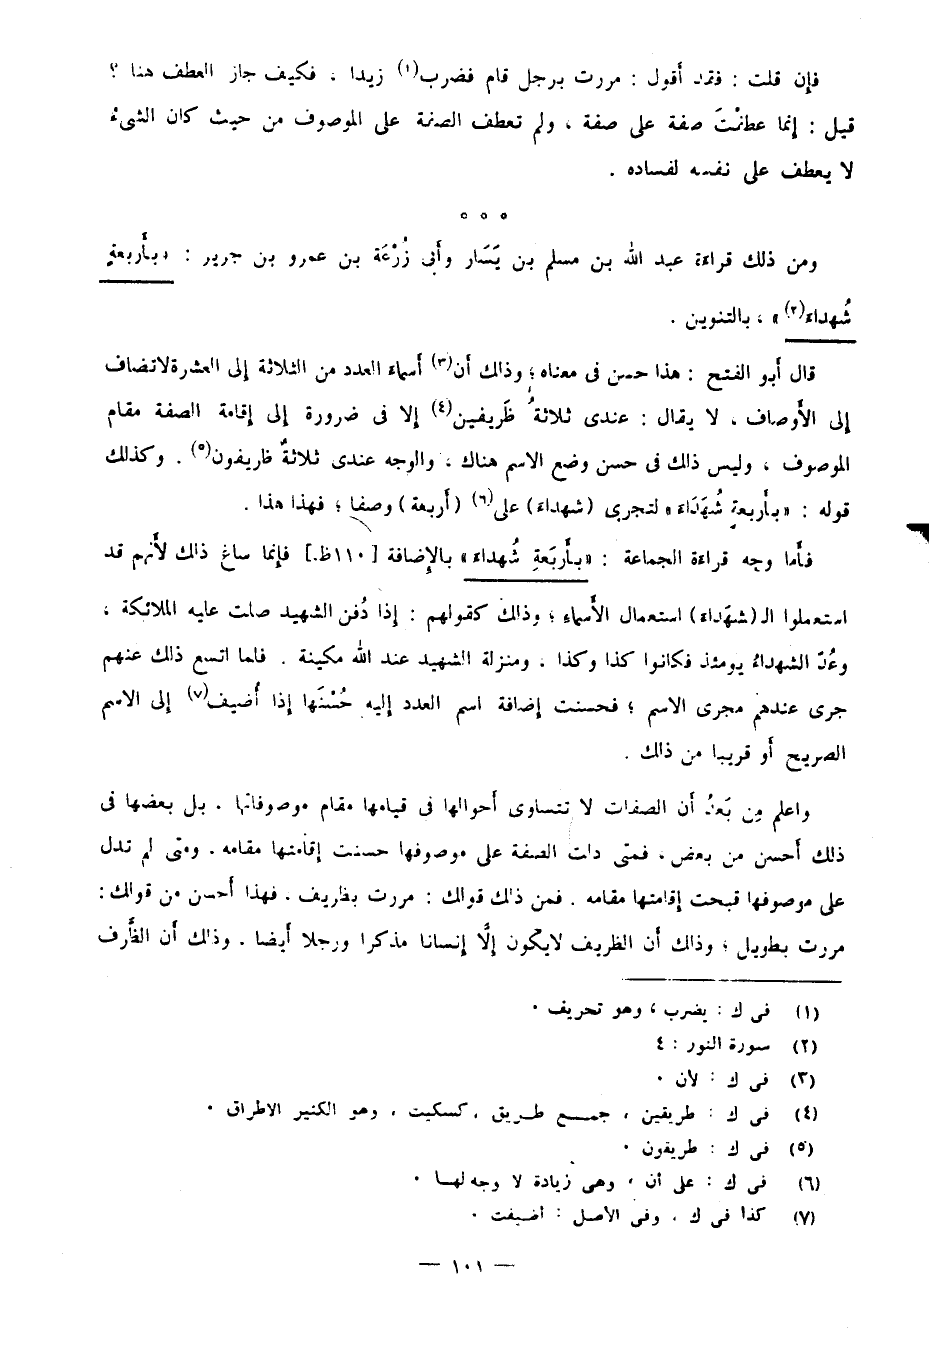 فإن قلت : فقد أقول : مررت برجل قام فضرب(١) زيدا ، فكيف جاز العطف هنا ؟
قيل : إنما عطفْتَ صفة على صفة ، ولم تعطف الصفة على الموصوف من حيث كان الشيءُ
لا يعطف على نفسه لفساده .
° ° °
ومن ذلك قراءة عبد الله بن مسلم بن يَسَار وأبى زُرْعَة بن عمرو بن جرير : «بأَربعةٍ
شُهداء(٢)» ، بالتنوين .
قال أبو الفتح : هذا حسن فى معناه ؛ وذلك أن(٣) أسماء العدد من الثلاثة إلى العشرة لاتضاف
إلى الأَوصاف ، لا يقال : عندى ثلاثةُ ظَريفين(٤) إلا فى ضرورة إلى إقامة الصفة مقام
الموصوف ، وليس ذلك فى حسن وضع الاسم هناك ، والوجه عندى ثلاثةٌ ظريفون(٥) . وكذلك
قوله : «بأَربعةٍ شُهَدَاءَ» لتجرى (شهداء) على(٦) (أربعة) وصفا ؛ فهذا هذا .
فأما وجه قراءة الجماعة : «بأَربَعَةِ شُهداء» بالإضافة [١١٠ظ.] فإنما ساغ ذلك لأنهم قد
استعملوا الـ (شهداء) استعمال الأَسماء ؛ وذلك كقولهم : إذا دُفن الشهيد صلت عليه الملائكة ،
وعُدّ الشهداءُ يومئذ فكانوا كذا وكذا ، ومنزلة الشهيد عند الله مكينة . فلما اتسع ذلك عنهم
جرى عندهم مجرى الاسم ؛ فحسنت إضافة اسم العدد إليه حُسْنَها إذا أُضيف(٧) إلى الاسم
الصريح أو قريبا من ذلك .
واعلم مِن بَعدُ أن الصفات لا تتساوى أحوالها فى قيامها مقام موصوفاتها . بل بعضها فى
ذلك أحسن من بعض ، فمتى دلت الصفة على موصوفها حسنت إقامتها مقامه . ومتى لم تدل
على موصوفها قبحت إقامتها مقامه . فمن ذلك قولك : مررت بظريف . فهذا أحسن من قولك :
مررت بطويل ؛ وذلك أن الظريف لايكون إلَّا إنسانا مذكرا ورجلا أيضا . وذلك أن الظَّرف
(١) فى ك : يضرب ، وهو تحريف .
(٢) سورة النور : ٤
(٣) فى ك : لأن .
(٤) فى ك : طريقين ، جمع طريق ، كسكيت ، وهو الكثير الاطراق .
(٥) فى ك : طريقون .
(٦) فى ك : على أن ، وهى زيادة لا وجه لها .
(٧) كذا فى ك ، وفى الأصل : أضيفت .
— ١٠١ —